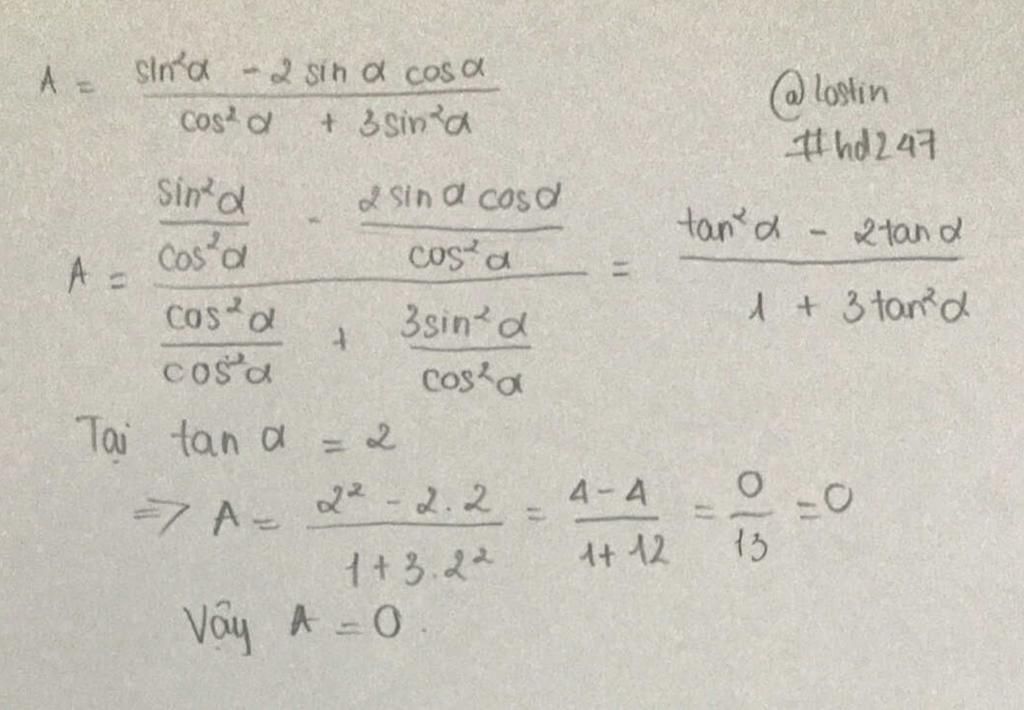 A = (sin²α - 2 sin α cos α) / (cos² α + 3 sin²α)
@lostin
#hd247
A = (sin²α / cos²α - 2 sin α cos α / cos²α) / (cos²α / cos²α + 3sin²α / cos²α) = (tan²α - 2tan α) / (1 + 3 tan²α)
Tại tan α = 2
=> A = (2² - 2.2) / (1 + 3.2²) = (4-4) / (1+12) = 0/13 = 0
Vậy A = 0.